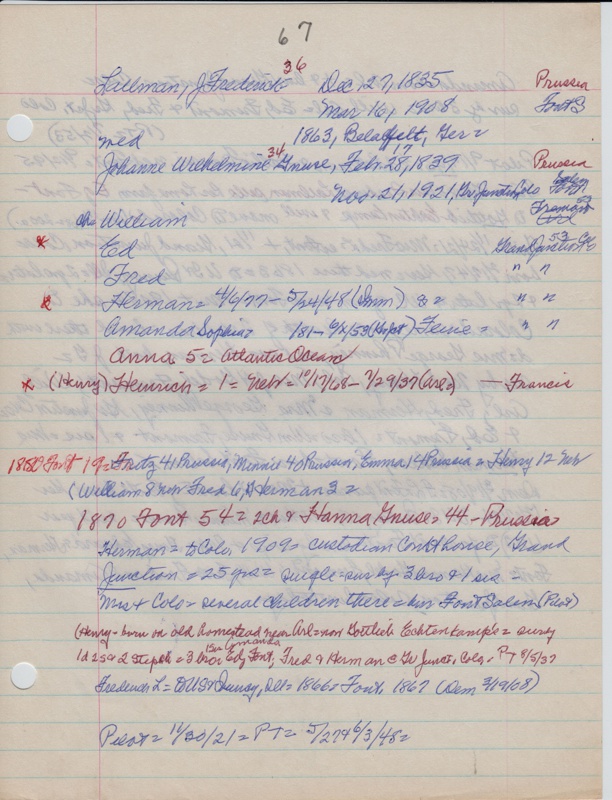 67
36
Lallman, J Frederick Dec 27, 1835 Prussia
Mar 16, 1908 Font S
med 1863, Ger =
34 17
Johanne Wilhelmine Gnuse, Feb. 28, 1839 Prussia
Nov. 21, 1921, Gr Junction Colo
ch= William Fremont 53
x Ed Grand Junction Co 53
Fred " "
x Herman = 4/6/77 - 5/24/48 (Imm) = " "
Amanda Sophia = 181 - (Hopt) = " "
Anna 5 = Atlantic Ocean
x (Henry) Heinrich = 1 = Neb = 10/17/68 - 7/29/37 (Arl=) — Francis
1880 Font 19 = Fritz 41 Prussia, Minnie 40 Prussia, Emma 14 Prussia = Henry 12 Neb
(William 8 Neb Fred 6, Herman 3 =
1870 Font 54 = 2ch & Hanna Gnuse = 44 - Prussia
Herman = to Colo. 1909 = custodian Courthouse, Grand
Junction = 25 yrs = single = sur by 3 bro & 1 sis =
Mrs & Colo = several children there = bur Font Salem (Pilot)
(Henry = born on old homestead near Arl = now Gottlieb Echtenkamp's = surv
1 sis Amanda
1d 2s & 2 steps = 3 bro: Ed, Font, Fred & Herman @ Gr Junct. Colo. - PT 8/5/37
Frederick L = to US & Quincy, Ill = 1866 = Font. 1867 (Dem 3/19/08)
Pilot = 11/30/21 = PT = 5/27 & 6/3/48 =